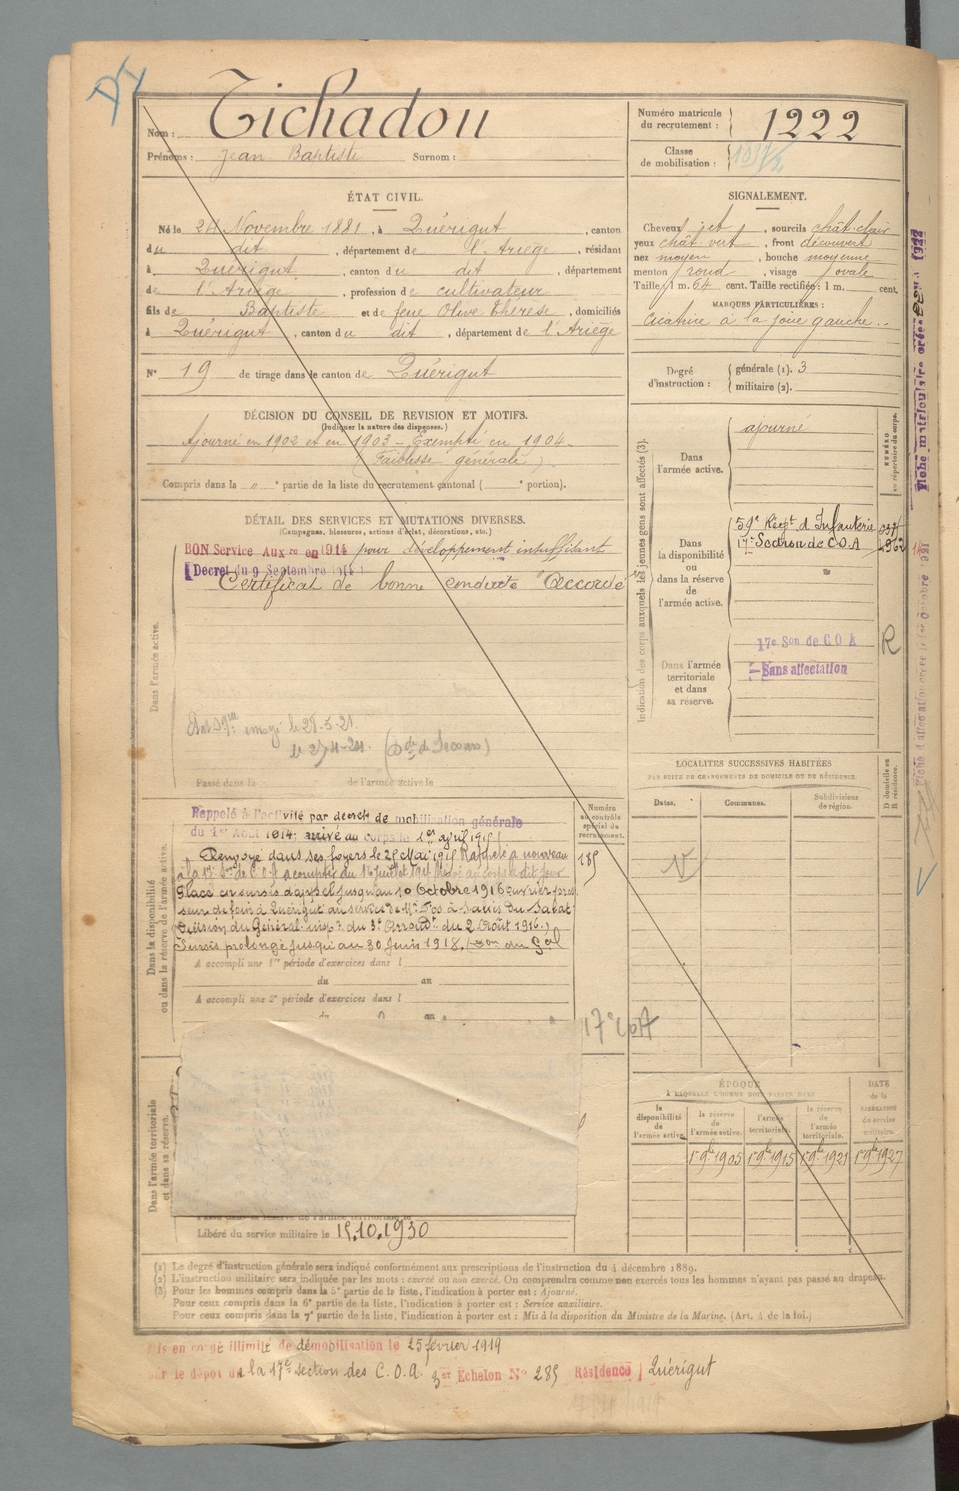 Nom : Tichadou
Prénoms : Jean Baptiste Surnom :
Numéro matricule du recrutement : 1222
Classe de mobilisation :
ÉTAT CIVIL.
Né le 24 Novembre 1881, à Quérigut, canton
du dit, département de l'Ariège, résidant
à Quérigut, canton du dit, département
de l'Ariège, profession de cultivateur
fils de Baptiste et de feue Olive Thérèse, domiciliés
à Quérigut, canton du dit, département de l'Ariège
N° 19 de tirage dans le canton de Quérigut
SIGNALEMENT.
Cheveux jet, sourcils chât-clair
yeux chât. vert, front découvert
nez moyen, bouche moyenne
menton rond, visage ovale
Taille : 1 m. 64 cent. Taille rectifiée : 1 m. cent.
MARQUES PARTICULIÈRES :
Cicatrice à la joue gauche.
Degré d'instruction : générale (1). 3
militaire (2).
DÉCISION DU CONSEIL DE REVISION ET MOTIFS.
(Indiquer la nature des dispenses.)
Ajourné en 1902 et en 1903 - Exempté en 1904.
(Faiblesse générale)
Compris dans la " e partie de la liste du recrutement cantonal ( e portion).
DÉTAIL DES SERVICES ET MUTATIONS DIVERSES.
(Campagnes, blessures, actions d'éclat, décorations, etc.)
BON Service Aux re en 1914 pour développement insuffisant
Decret du 9 Septembre 1914
Certificat de bonne conduite "Accordé"
Dans l'armée active.
envoyé le 28-5-21.
(de Secours)
Passé dans la de l'armée active le
Indication des corps auxquels les jeunes gens sont affectés (3).
NUMÉRO au répertoire du corps.
Dans l'armée active.
ajourné
Dans la disponibilité ou dans la réserve de l'armée active.
59e Régt. d'Infanterie
17e Section de C.O.A
Dans l'armée territoriale et dans sa réserve.
17e Son de C O A
Sans affectation
R
LOCALITÉS SUCCESSIVES HABITÉES
PAR SUITE DE CHANGEMENTS DE DOMICILE OU DE RÉSIDENCE
Dates. Communes. Subdivisions de région. D domicile ou R résidence.
Dans la disponibilité ou dans la réserve de l'armée active.
Numéro au contrôle spécial du recrutement.
Rappelé à l'activité par décret de mobilisation générale
du 1er Août 1914; arrivé au corps le 1er avril 1915
Renvoyé dans ses foyers le 25 Mai 1915 Rappelé à nouveau
à la 17e Son de C.O.A à compter du
Placé en sursis d'appel jusqu'au 10 Octobre 1916 ouvrier
seur de foin à Quérigut au service de Mr. Fos à
Décision du Général du 3e Arrondt. du 2 Août 1916.
Sursis prolongé jusqu'au 30 Juin 1918.
A accompli une 1re période d'exercices dans l
du au
A accompli une 2e période d'exercices dans l
17e COA
Dans l'armée territoriale et dans sa réserve.
Libéré du service militaire le 15.10.1930
ÉPOQUE
À LAQUELLE L'HOMME DOIT PASSER DANS
la disponibilité de l'armée active. la réserve de l'armée active. l'armée territoriale. la réserve de l'armée territoriale.
DATE de la libération du service militaire.
1er 9bre 1905 1er 9bre 1915 1er 9bre 1921 1er 9bre 1927
(1) Le degré d'instruction générale sera indiqué conformément aux prescriptions de l'instruction du 4 décembre 1889.
(2) L'instruction militaire sera indiquée par les mots : exercé ou non exercé. On comprendra comme non exercés tous les hommes n'ayant pas passé au drapeau.
(3) Pour les hommes compris dans la 5e partie de la liste, l'indication à porter est : Ajourné.
Pour ceux compris dans la 6e partie de la liste, l'indication à porter est : Service auxiliaire.
Pour ceux compris dans la 7e partie de la liste, l'indication à porter est : Mis à la disposition du Ministre de la Marine. (Art. 4 de la loi.)
is en congé illimité de démobilisation le 25 février 1919
ur le dépôt de la 17e section des C.O.A. 3er Echelon N° 285 Résidence Quérigut